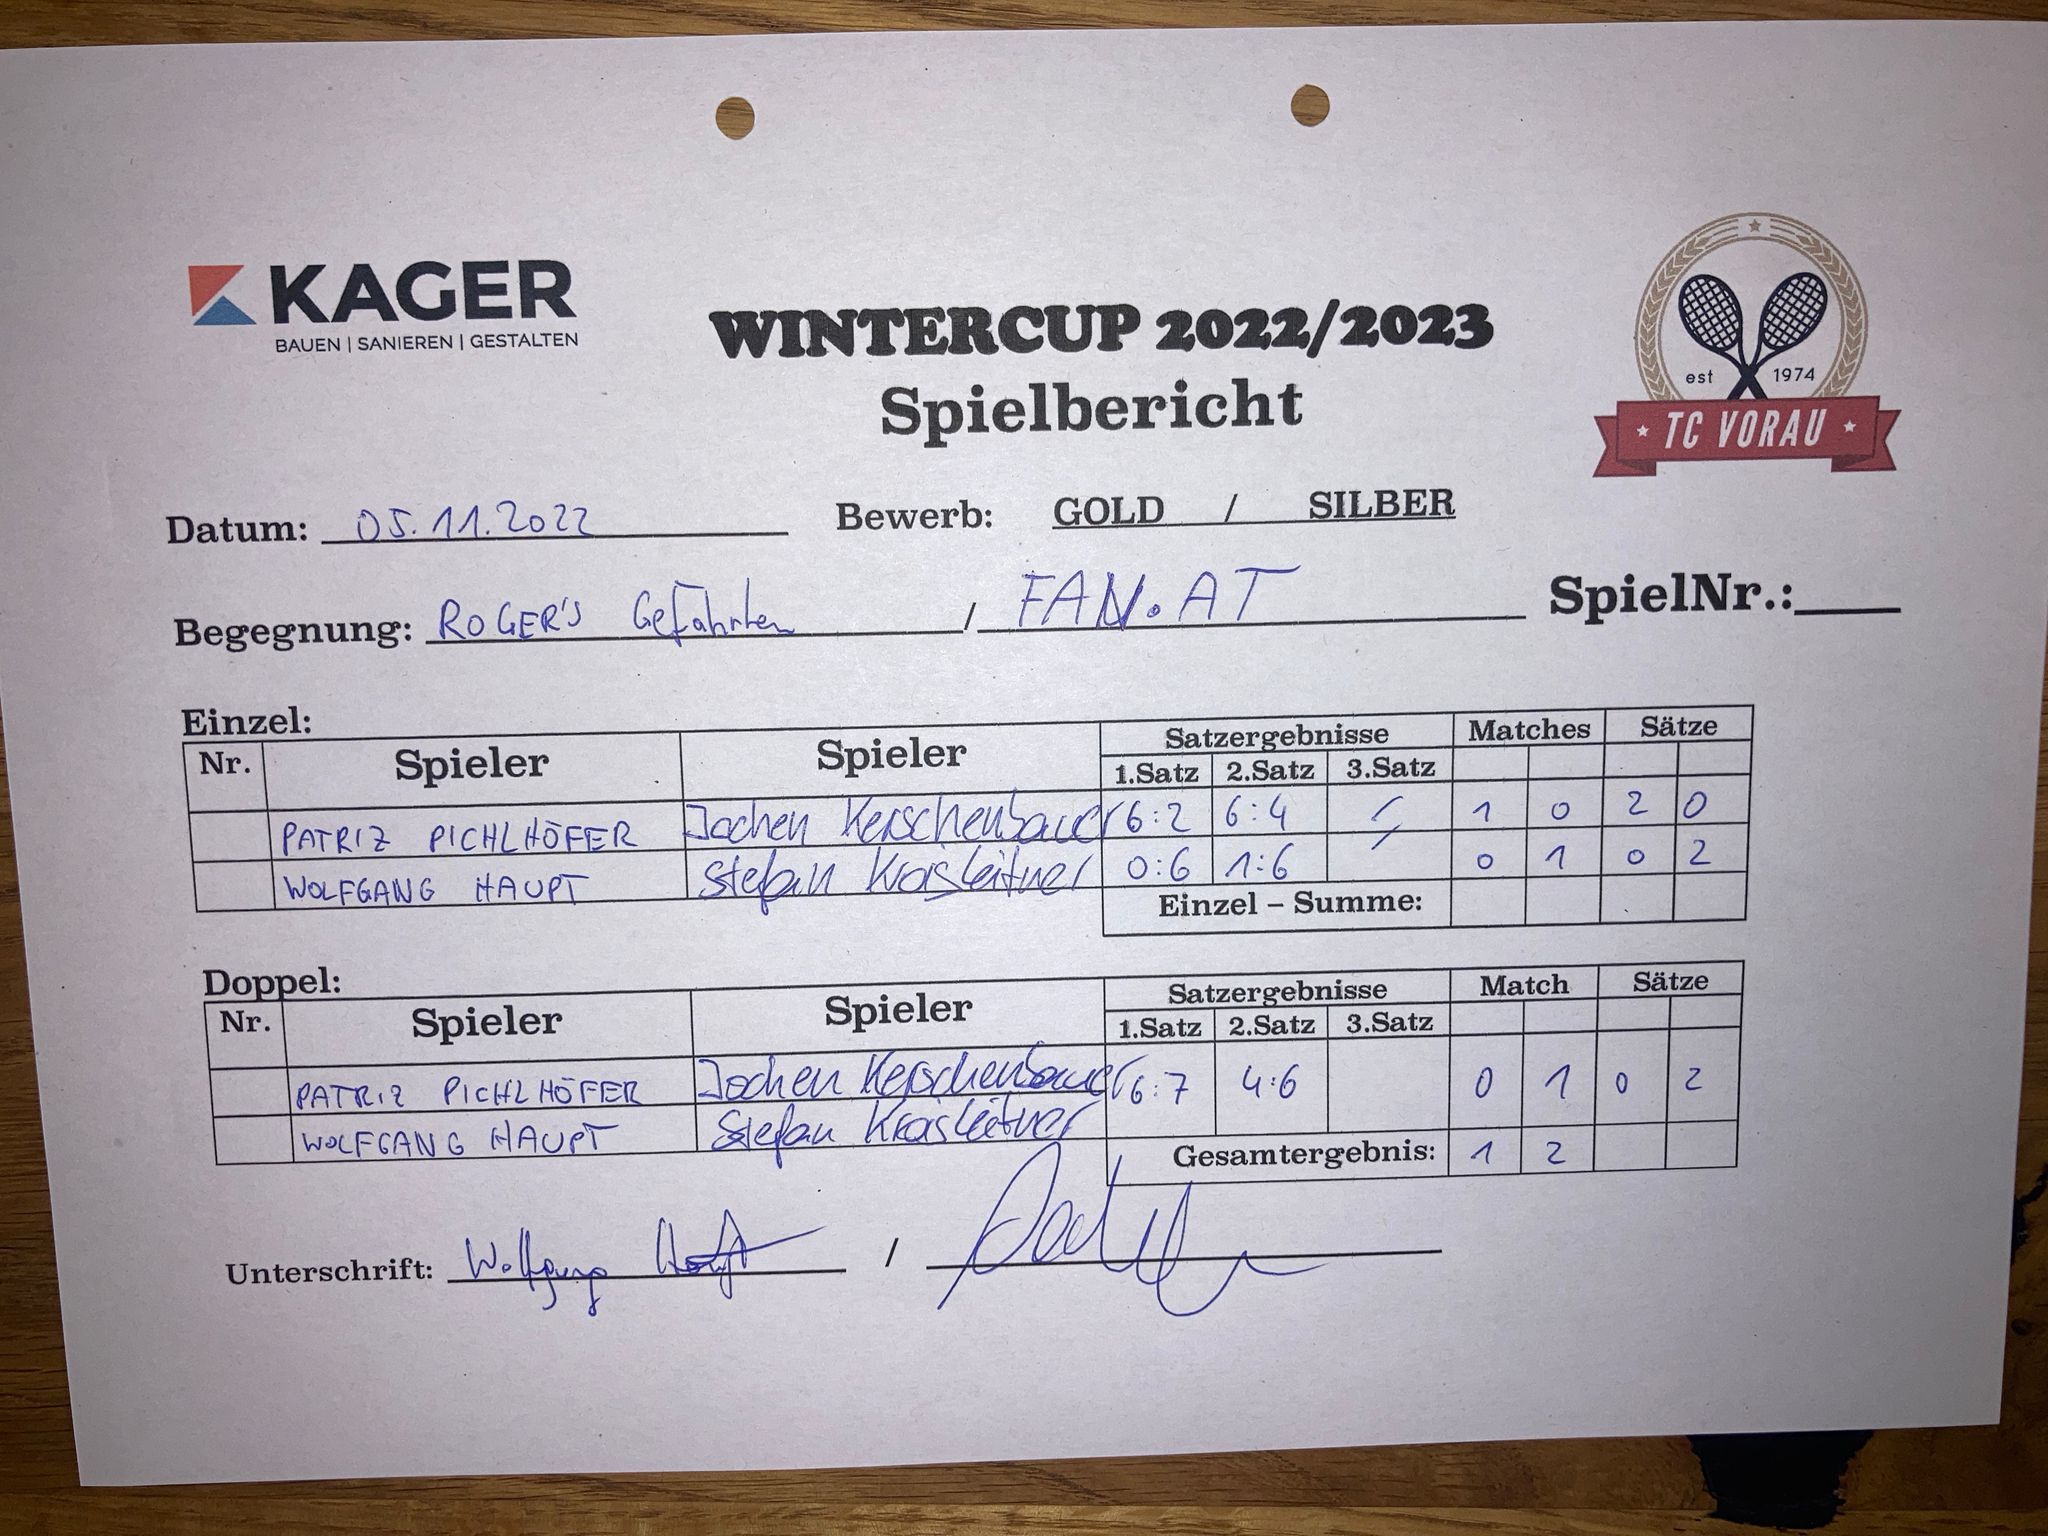 KAGER
BAUEN | SANIEREN | GESTALTEN
WINTERCUP 2022/2023
Spielbericht
est 1974
TC VORAU
Datum: 05.11.2022 Bewerb: GOLD / SILBER
Begegnung: ROGER'S Gefährten / FAN.AT SpielNr.:
Einzel:
Nr. Spieler Spieler Satzergebnisse Matches Sätze
1.Satz 2.Satz 3.Satz
PATRIZ PICHLHÖFER Jochen Kerschenbauer 6:2 6:4 / 1 0 2 0
WOLFGANG HAUPT Stefan Kroisleitner 0:6 1:6 / 0 1 0 2
Einzel – Summe:
Doppel:
Nr. Spieler Spieler Satzergebnisse Match Sätze
1.Satz 2.Satz 3.Satz
PATRIZ PICHLHÖFER Jochen Kerschenbauer 6:7 4:6 0 1 0 2
WOLFGANG HAUPT Stefan Kroisleitner
Gesamtergebnis: 1 2
Unterschrift: Wolfgang Haupt /